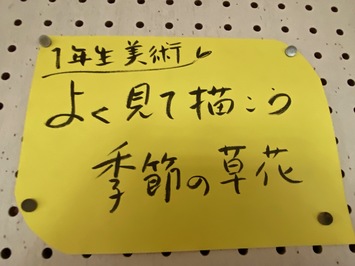 1年生美術
よく見て描こう
季節の草花